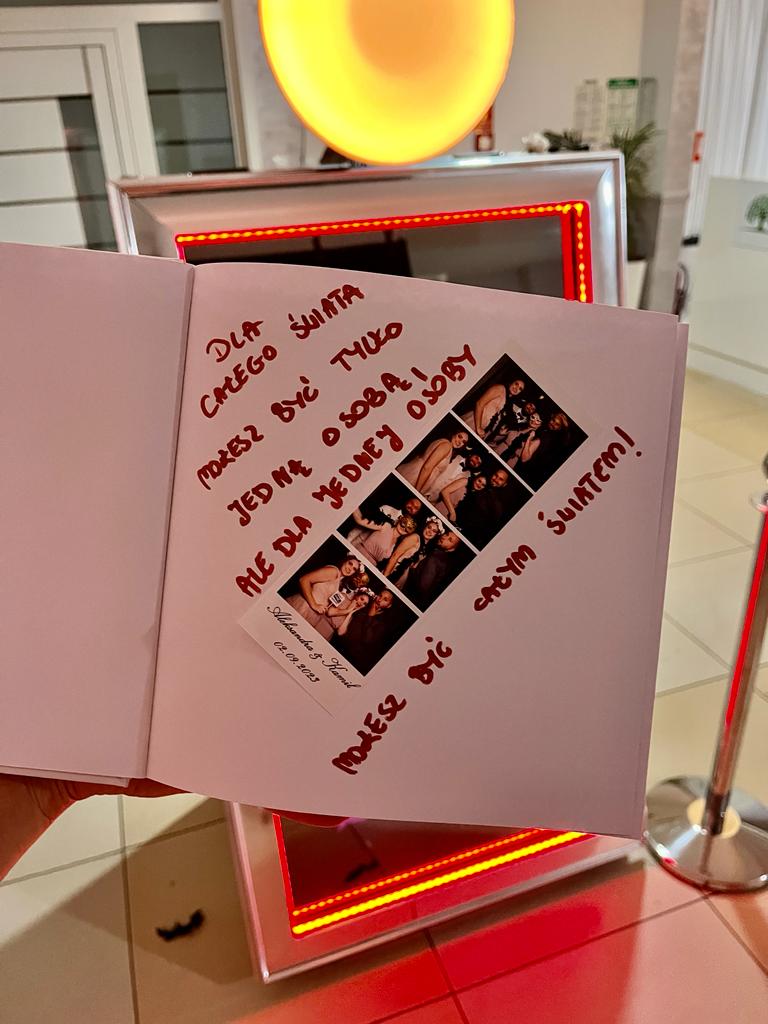 DLA
CAŁEGO ŚWIATA
MOŻESZ BYĆ TYLKO
JEDNĄ OSOBĄ,
ALE DLA JEDNEJ OSOBY
MOŻESZ BYĆ CAŁYM ŚWIATEM!
Aleksandra & Kamil
02.09.2023